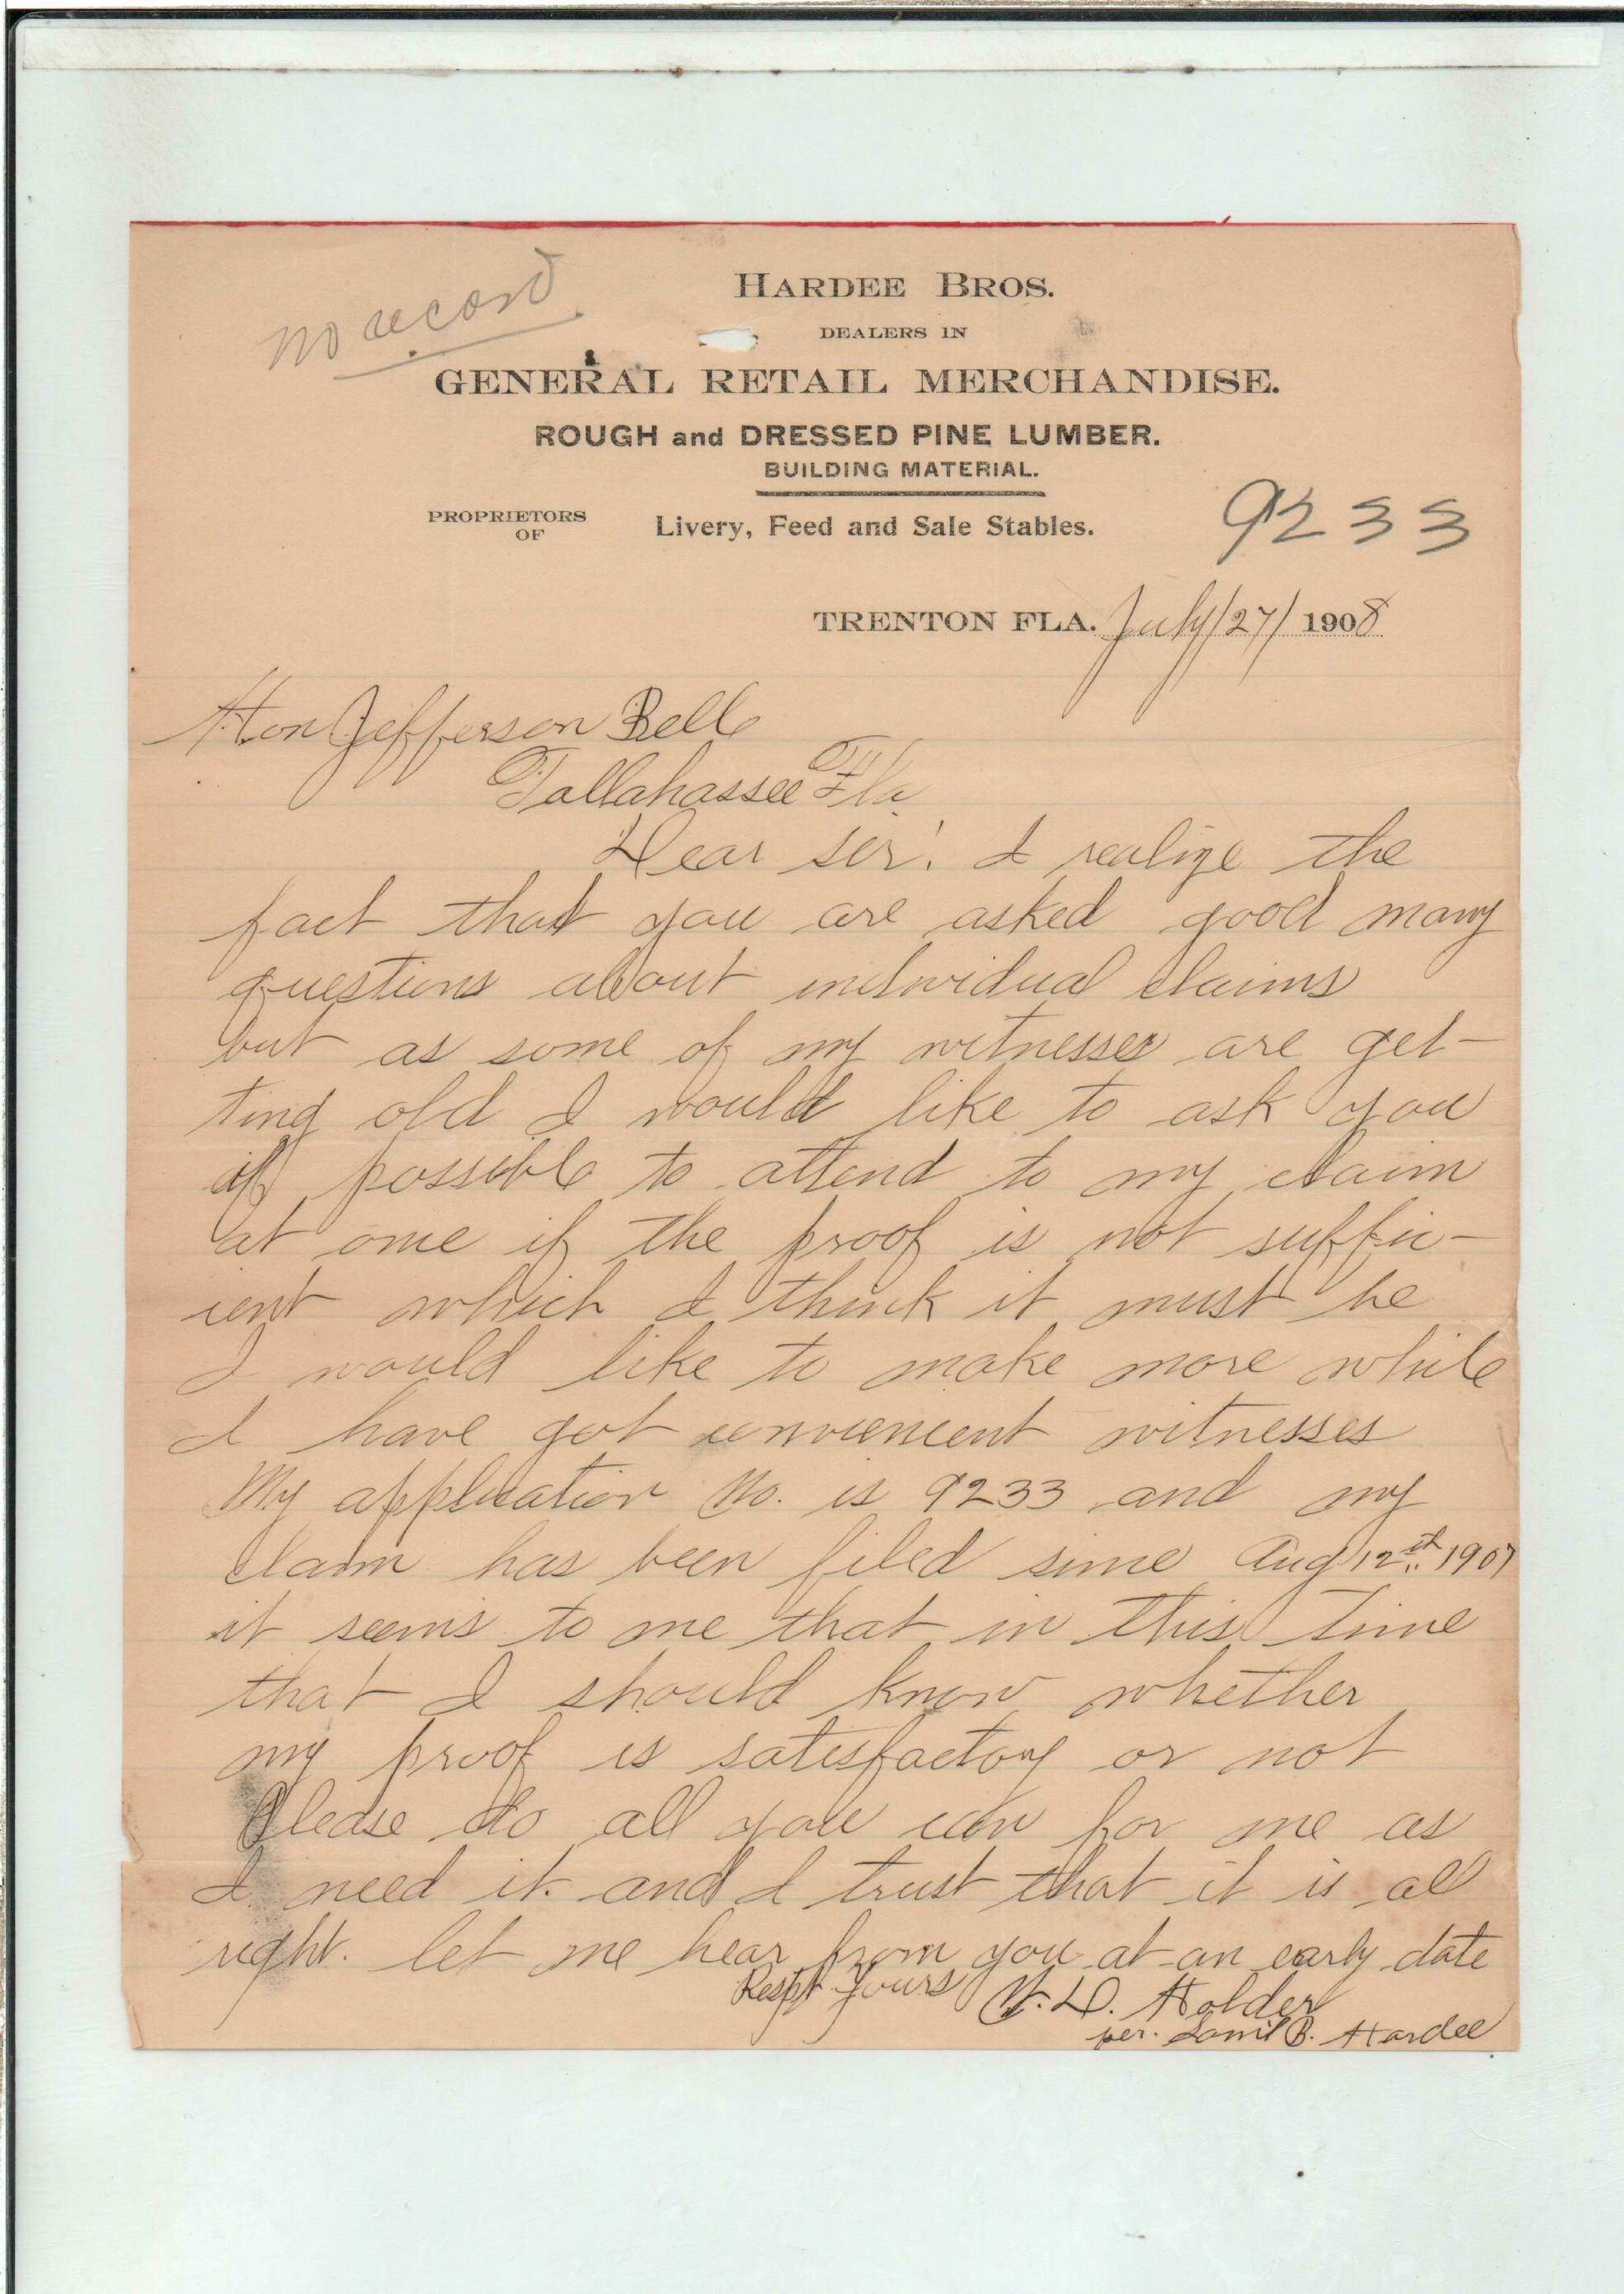 no record
HARDEE BROS.
DEALERS IN
GENERAL RETAIL MERCHANDISE.
ROUGH and DRESSED PINE LUMBER.
BUILDING MATERIAL.
PROPRIETORS
OF
Livery, Feed and Sale Stables.
9233
TRENTON FLA. July/27/ 1908
Hon Jefferson Bell
Tallahassee Fla
Dear Sir! I realize the
fact that you are asked good many
questions about individual claims
but as some of my witnesses are get-
ting old I would like to ask you
if possible to attend to my claim
at once if the proof is not suffic-
ient which I think it must be
I would like to make more while
I have got convienient witnesses
My application No. is 9233 and my
claim has been filed since Aug 12th 1907
it seems to me that in this time
that I should know whether
my proof is satisfactory or not
Please do all you can for me as
I need it. and I trust that it is al
right. let me hear from you at an early date
Respt Yours
D. Holder
per. B. Hardee